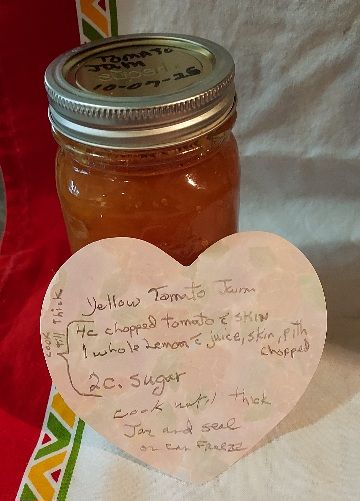 TOMATO
JAM
10-07-25
Yellow Tomato Jam
4c chopped tomato & SKIN
1 whole Lemon & juice, skin, pith
chopped
2c. sugar
cook till thick
cook until thick
Jar and seal
or can Freeze